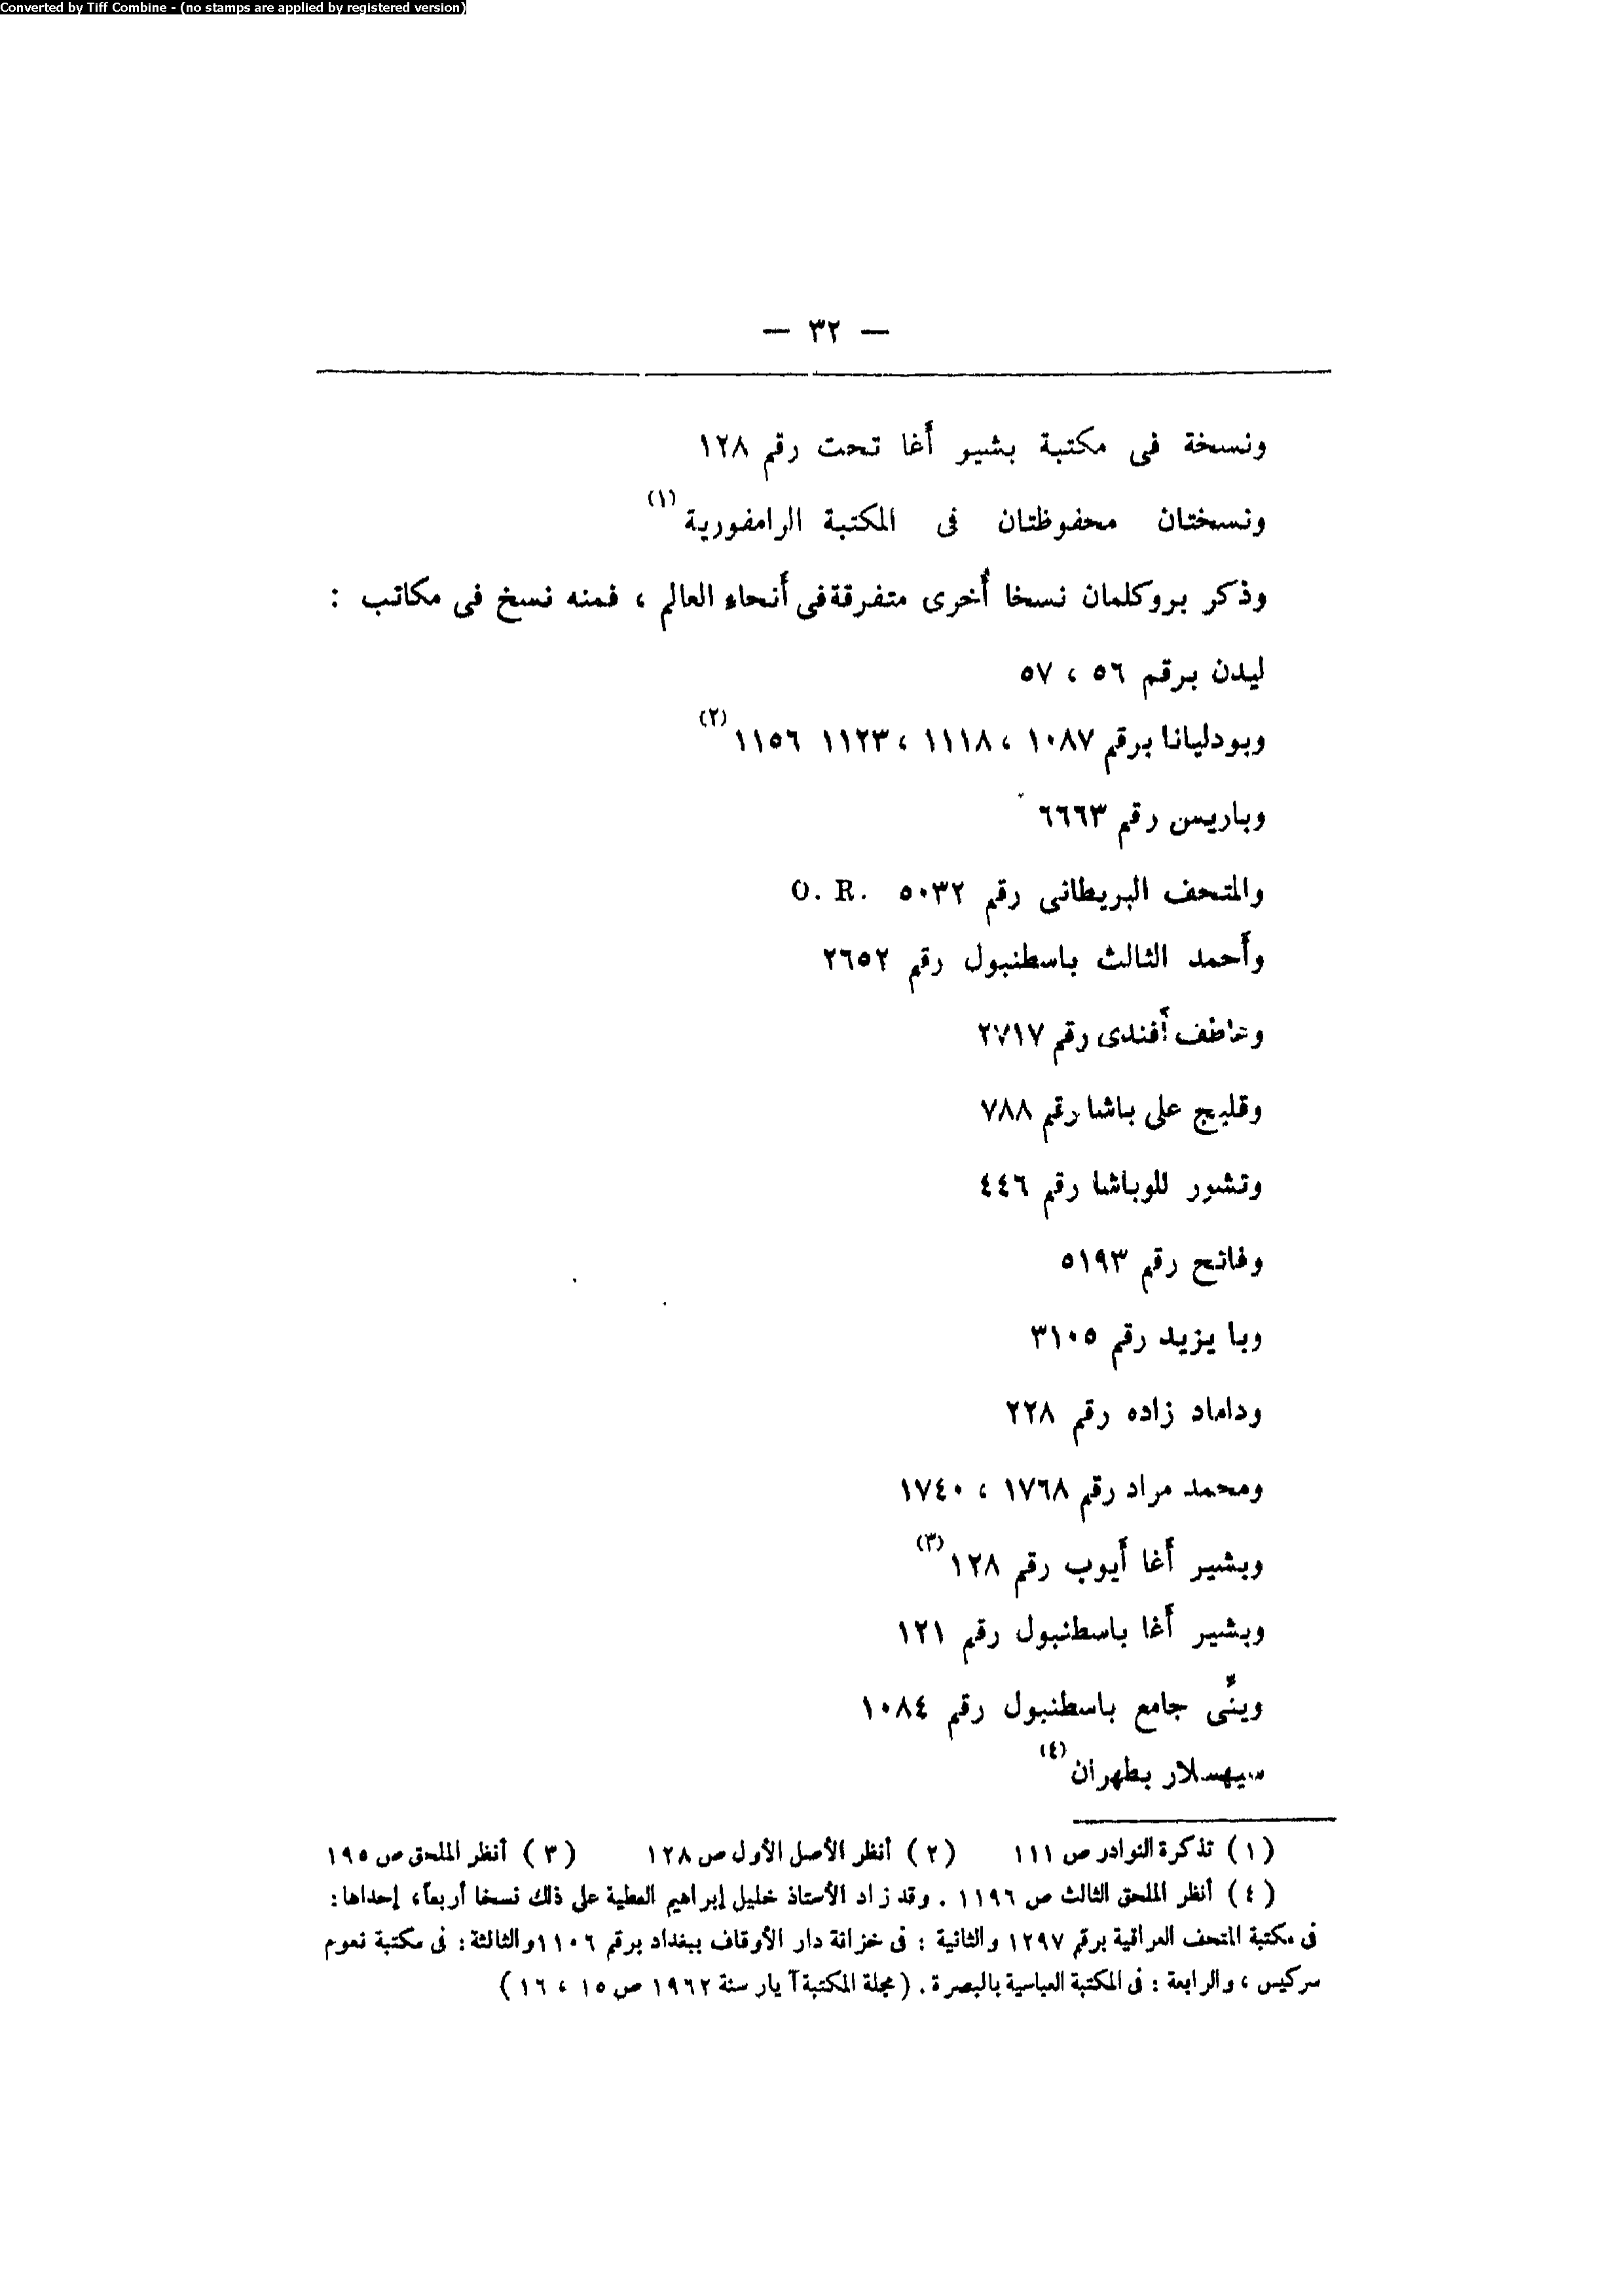 Converted by Tiff Combine - (no stamps are applied by registered version)
— ٣٢ —
ونسخة فى مكتبة بشير أغا تحت رقم ١٢٨
ونسختان محفوظتان فى المكتبة الرامفورية (١)
وذكر بروكلمان نسخا أخرى متفرقة فى أنحاء العالم ، فمنه نسخ فى مكاتب :
ليدن برقم ٥٦ ، ٥٧
وبودليانا برقم ١٠٨٧ ، ١١١٨ ، ١١٢٣ ١١٥٦ (٢)
وباريس رقم ٦٦٦٣
والمتحف البريطانى رقم ٥٠٣٢ O. R.
وأحمد الثالث باسطنبول رقم ٢٦٥٢
وعاطف أفندى رقم ٢٧١٧
وقليج على باشا رقم ٧٨٨
وتشور للوباشا رقم ٤٤٦
وفاتح رقم ٥١٩٣
وبا يزيد رقم ٣١٠٥
وداماد زاده رقم ٢٢٨
ومحمد مراد رقم ١٧٦٨ ، ١٧٤٠
وبشير أغا أيوب رقم ١٢٨ (٣)
وبشير أغا باسطنبول رقم ١٢١
وينًى جامع باسطنبول رقم ١٠٨٤
سيهسلار بطهران (٤)
(١) تذكرة النوادر ص ١١١ (٢) أنظر الأصل الأول ص ١٢٨ (٣) أنظر الملحق ص ١٩٥
(٤) أنظر الملحق الثالث ص ١١٩٦ . وقد زاد الأستاذ خليل إبراهيم العطية على ذلك نسخا أربعاً، إحداها :
فى مكتبة المتحف العراقية برقم ١٢٩٧ والثانية : فى خزانة دار الأوقاف ببغداد برقم ١١٠٦ والثالثة : فى مكتبة نعوم
سركيس ، والرابعة : فى المكتبة العباسية بالبصرة . (مجلة المكتبة آ يار سنة ١٩٦٢ ص ١٥ ، ١٦)